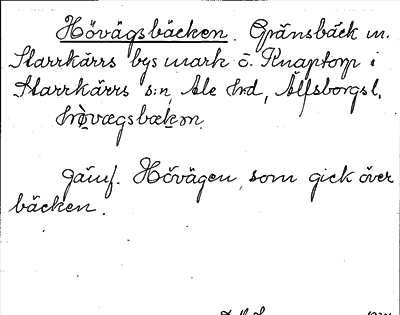 Hövägsbäcken. Gränsbäck m.
Starrkärrs bys mark o. Knaptorp i
Starrkärrs s:n, Ale hrd, Älfsborgs l.
hòvægsbækən.
Jämf. Hövägen, som gick över
bäcken.